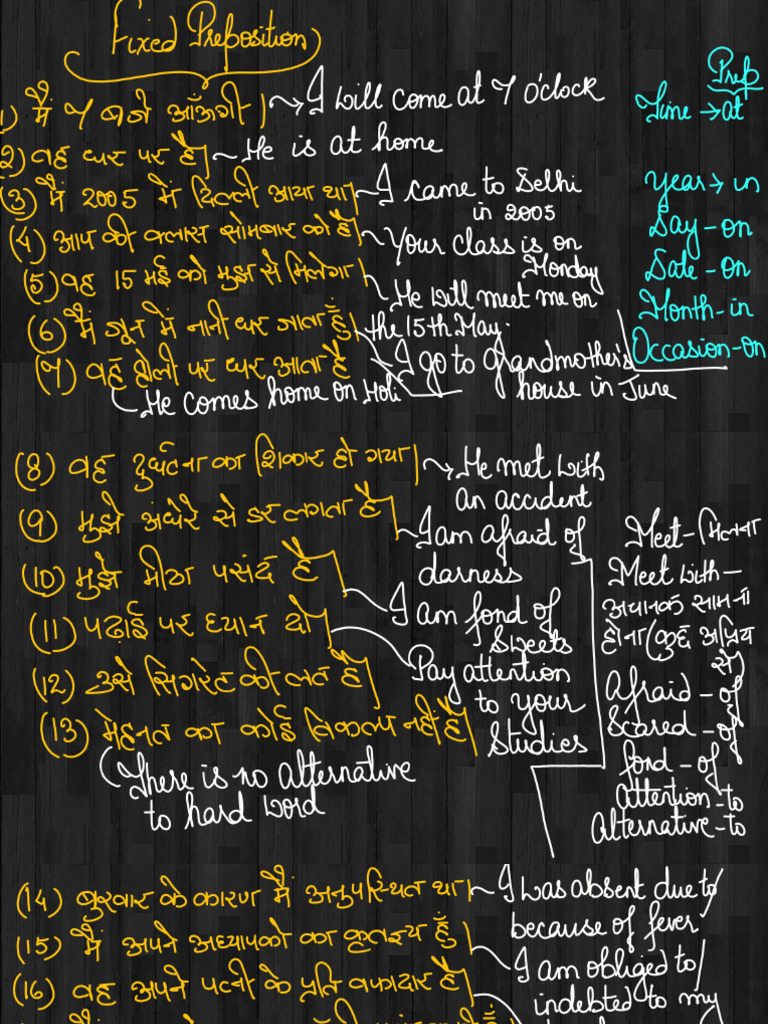 Fixed Preposition
1) मैं 7 बजे आऊँगी। I will come at 7 o'clock
2) वह घर पर है। He is at home
(3) मैं 2005 में दिल्ली आया था। I came to Delhi
in 2005
(4) आप की क्लास सोमबार को है। Your class is on
Monday
(5) वह 15 मई को मुझ से मिलेगा। He will meet me on
the 15th May.
(6) मैं जून में नानी घर जाता हूँ। I go to Grandmother's
house in June
(7) वह होली पर घर आता है
He comes home on Holi
Prep
Time → at
Year → in
Day - on
Date - on
Month - in
Occasion - on
(8) वह दुर्घटना का शिकार हो गया। He met with
an accident
(9) मुझे अंधेरे से डर लगता है। I am afraid of
darness
(10) मुझे मीठा पसंद है। I am fond of
Sweets
(11) पढ़ाई पर ध्यान दो। Pay attention
to your
Studies
(12) उसे सिगरेट की लत है।
(13) मेहनत का कोई विकल्प नहीं है।
There is no alternative
to hard word
Meet - मिलना
Meet with -
अचानक सामना
होना (कुछ अप्रिय
से)
Afraid - of
Scared - of
fond - of
Attention - to
Alternative - to
(14) बुखार के कारण मैं अनुपस्थित था। I was absent due to/
because of fever
(15) मैं अपने अध्यापको का कृतज्ञ हूँ। I am obliged to/
indebted to my
(16) वह अपने पत्नी के प्रति वफादार है।